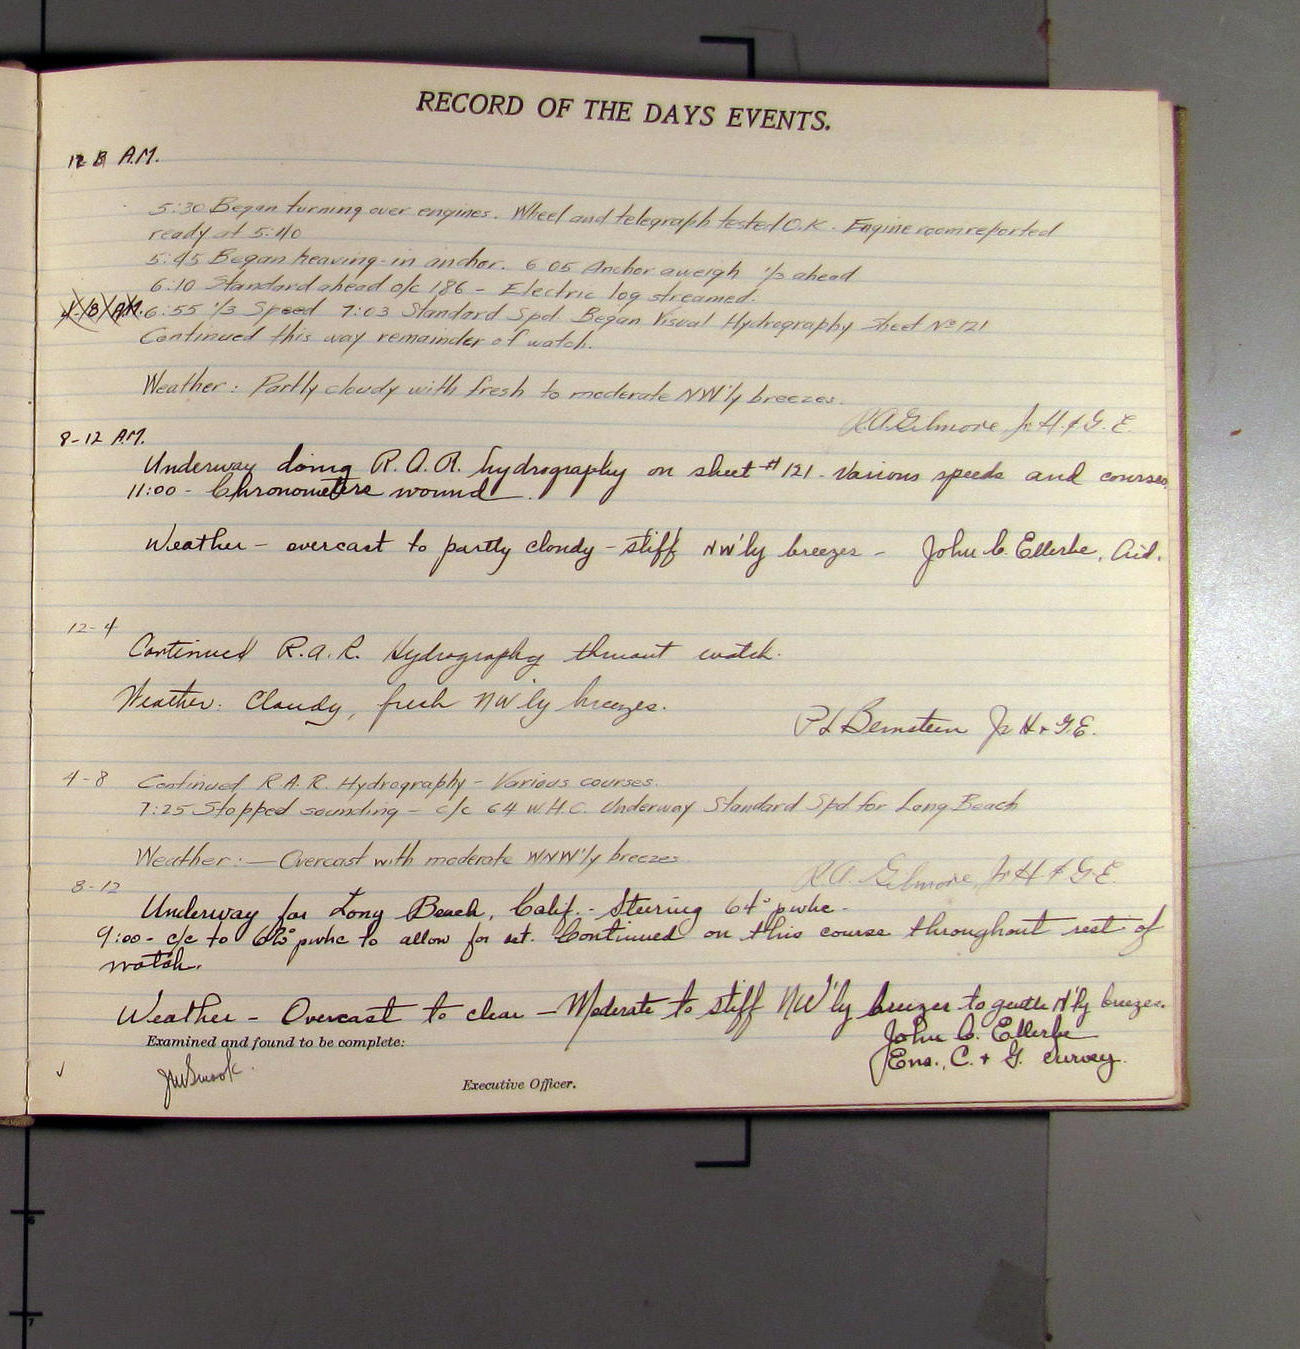 RECORD OF THE DAYS EVENTS.
12 8 A.M.
5:30 Began turning over engines. Wheel and telegraph tested O.K. Engine room reported
ready at 5:40
5:45 Began heaving-in anchor. 6 05 Anchor aweigh 1/3 ahead
6:10 Standard ahead o/c 186 - Electric log streamed.
4-8 A.M. 6:55 1/3 Speed 7:03 Standard Spd. Began Visual Hydrography Sheet No 121
Continued this way remainder of watch.
Weather: Partly cloudy with fresh to moderate NW'ly breezes.
R.A. Gilmore Jr. H. & G. E.
8-12 A.M.
Underway doing R.A.R. hydrography on sheet #121. Various speeds and courses.
11:00 - Chronometers wound.
Weather - overcast to partly cloudy - stiff NW'ly breezes - John C. Ellerbe, Aid.
12-4
Continued R.A.R. Hydrography thruout watch.
Weather: Cloudy, fresh NW'ly breezes.
P L Bernstein Jr H & G.E.
4-8 Continued R.A.R. Hydrography - Various courses.
7:25 Stopped sounding - c/c 64 W.H.C. Underway Standard Spd for Long Beach
Weather: - Overcast with moderate WNW'ly breezes
R.A. Gilmore, Jr H & G.E.
8-12
Underway for Long Beach, Calif. - Steering 64° pwhc -
9:00 - c/c to 62° pwhc to allow for set. Continued on this course throughout rest of
watch.
Weather - Overcast to clear - Moderate to stiff NW'ly breezes to gentle N'ly breezes.
John C. Ellerbe
Ens., C. & G. Survey.
Examined and found to be complete:
JM Smook
Executive Officer.